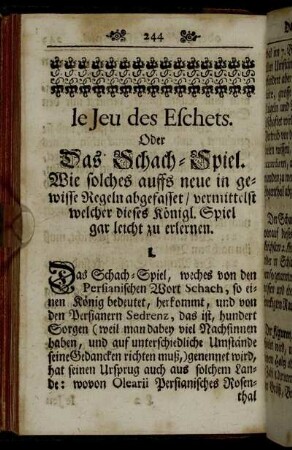 244
le Jeu des Eſchets.
Oder
Das Schach-Spiel.
Wie ſolches auffs neue in ge-
wiſſe Regeln abgefaſſet / vermittelſt
welcher dieſes Königl. Spiel
gar leicht zu erlernen.
I.
Das Schach-Spiel, weches von den
Perſianiſchen Wort Schach, ſo ei-
nen König bedeutet, herkommt, und von
den Perſianern Sedrenz, das iſt, hundert
Sorgen (weil man dabey viel Nachſinnen
haben, und auf unterſchiedliche Umſtände
ſeine Gedancken richten muß,) genennet wird,
hat ſeinen Urſprug auch aus ſolchem Lan-
de: wovon Olearii Perſianiſches Roſen-
thal